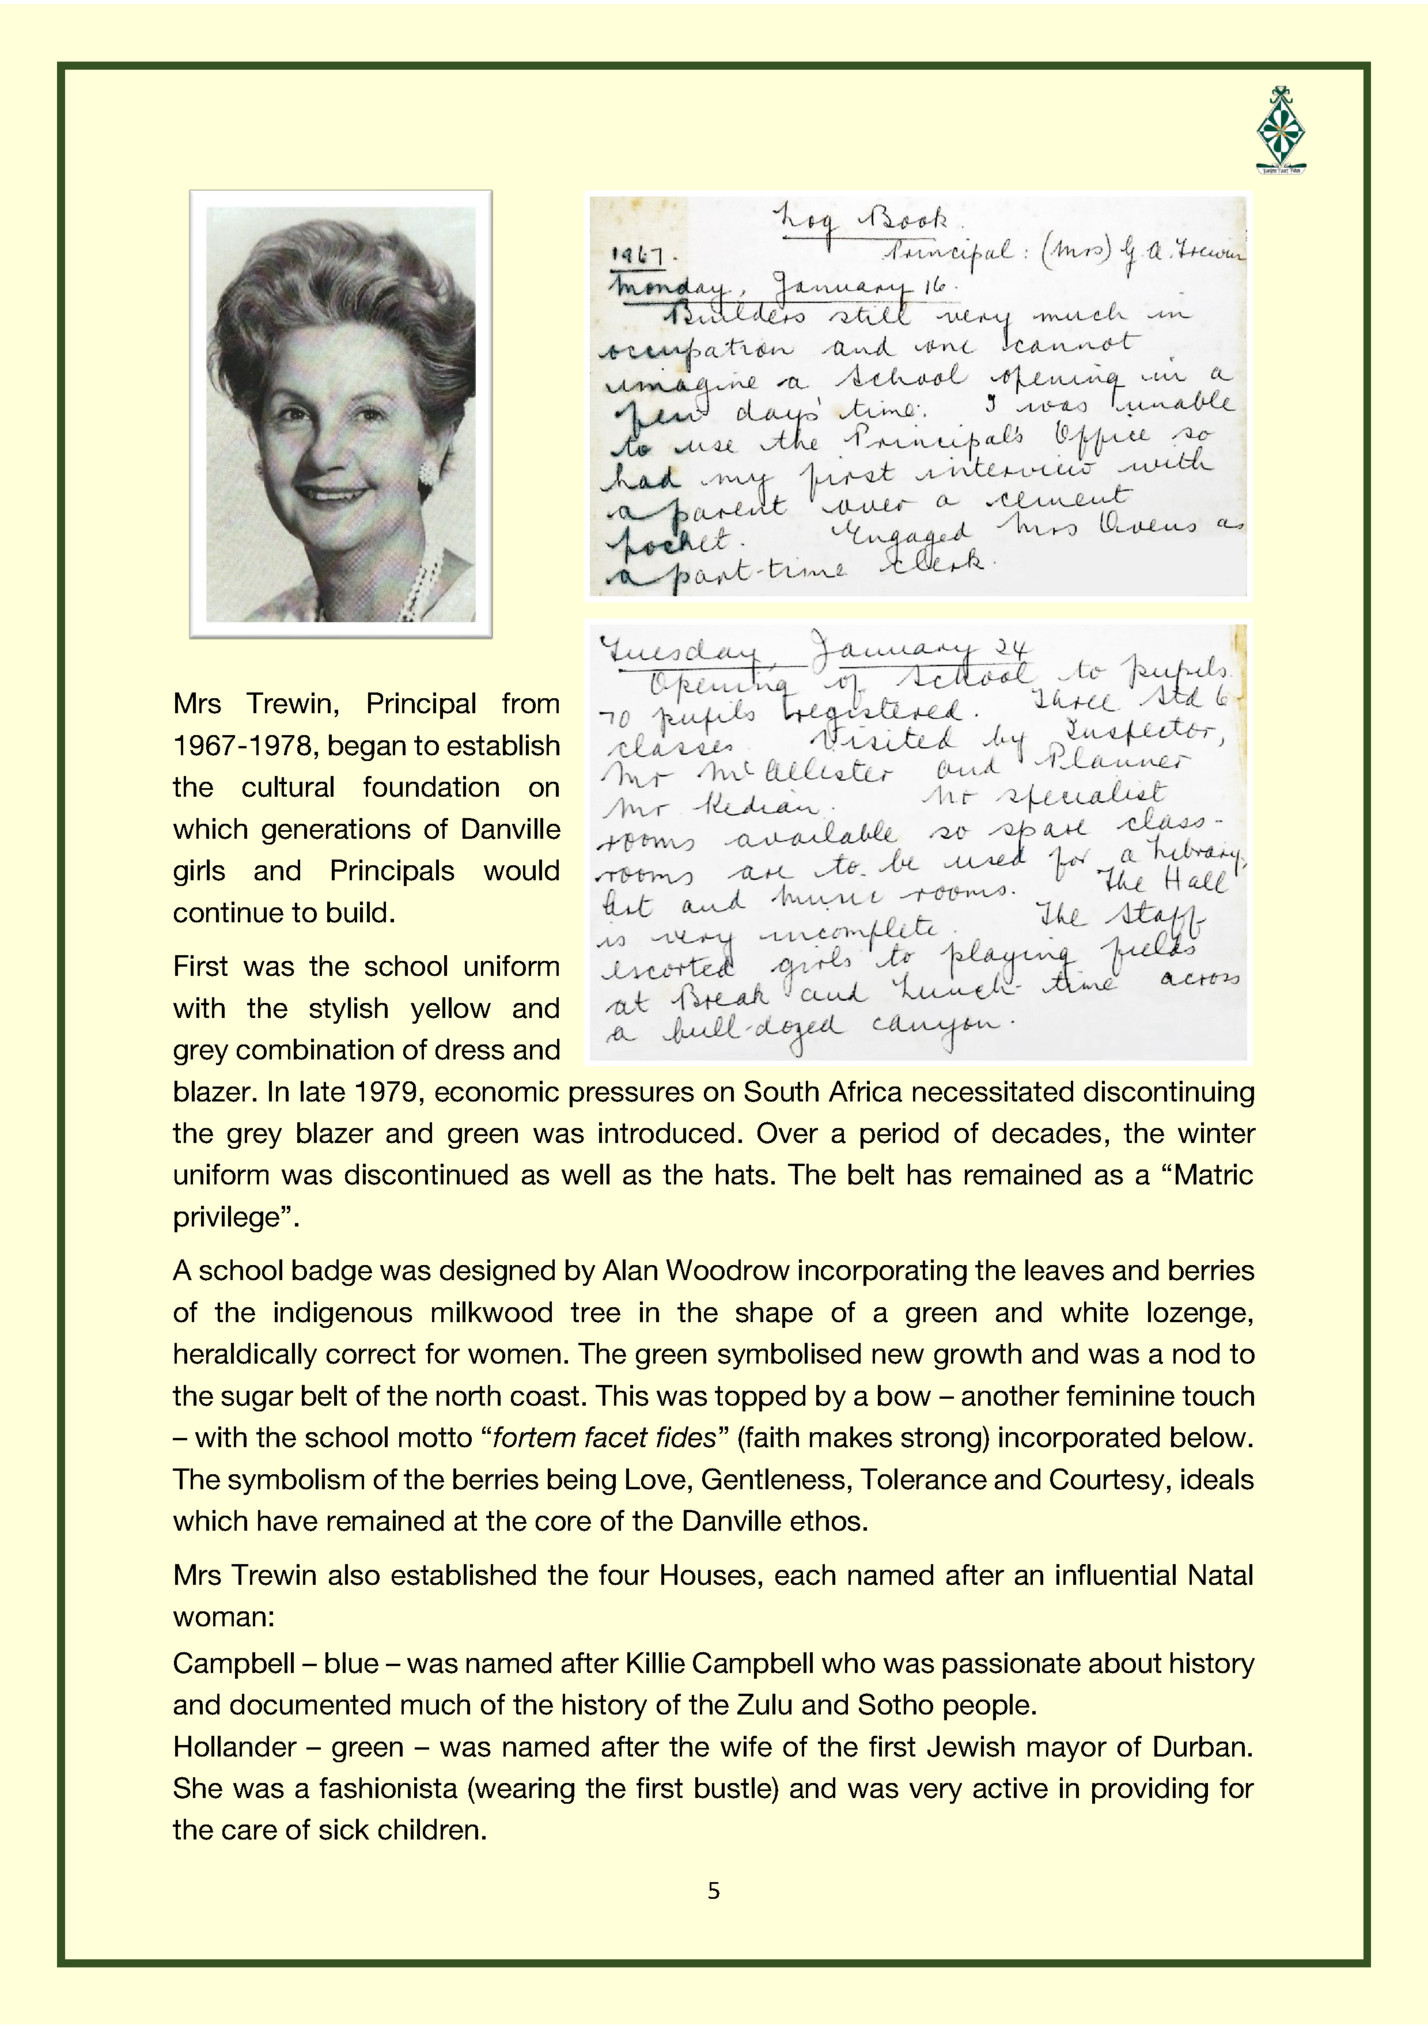 Log Book.
Principal: (Mrs) G. A. Trewin
1967.
Monday, January 16.
Builders still very much in
occupation and one cannot
imagine a School opening in a
few days' time. I was unable
to use the Principal's Office so
had my first interview with
a parent over a cement
pocket. Engaged Mrs Owens as
a part-time clerk.
Tuesday, January 24
Opening of School to pupils.
70 pupils registered. Three Std 6
classes. Visited by Inspector,
Mr McAllister and Planner
Mr Kedian. No specialist
rooms available so spare class-
rooms are to be used for a Library,
Art and Music rooms. The Hall
is very incomplete. The Staff
escorted girls to playing fields
at Break and Lunch-time across
a bull-dozed canyon.
Mrs Trewin, Principal from
1967-1978, began to establish
the cultural foundation on
which generations of Danville
girls and Principals would
continue to build.
First was the school uniform
with the stylish yellow and
grey combination of dress and
blazer. In late 1979, economic pressures on South Africa necessitated discontinuing
the grey blazer and green was introduced. Over a period of decades, the winter
uniform was discontinued as well as the hats. The belt has remained as a “Matric
privilege”.
A school badge was designed by Alan Woodrow incorporating the leaves and berries
of the indigenous milkwood tree in the shape of a green and white lozenge,
heraldically correct for women. The green symbolised new growth and was a nod to
the sugar belt of the north coast. This was topped by a bow – another feminine touch
– with the school motto “fortem facet fides” (faith makes strong) incorporated below.
The symbolism of the berries being Love, Gentleness, Tolerance and Courtesy, ideals
which have remained at the core of the Danville ethos.
Mrs Trewin also established the four Houses, each named after an influential Natal
woman:
Campbell – blue – was named after Killie Campbell who was passionate about history
and documented much of the history of the Zulu and Sotho people.
Hollander – green – was named after the wife of the first Jewish mayor of Durban.
She was a fashionista (wearing the first bustle) and was very active in providing for
the care of sick children.
5